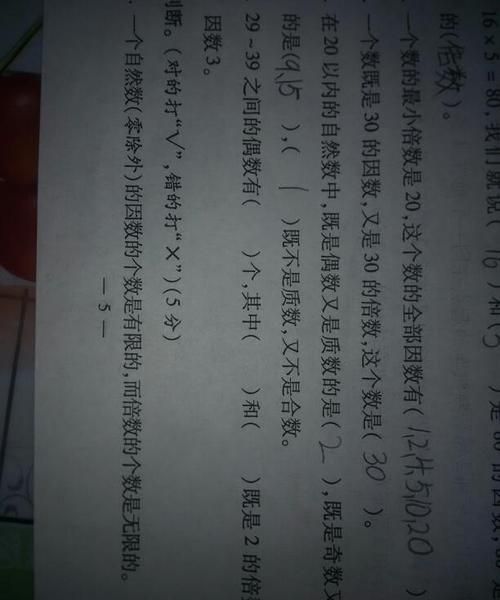 16×5=80,我们就说(16)和(5)是80的因数,80
的(倍数)。
一个数的最小倍数是20,这个数的全部因数有(1,2,4,5,10,20)
一个数既是30的因数,又是30的倍数,这个数是(30)。
在20以内的自然数中,既是偶数又是质数的是(2),既是奇数又
的是(9,15),(1)既不是质数,又不是合数。
29~39之间的偶数有( )个,其中( )和( )既是2的倍
因数3。
判断。(对的打“√”,错的打“×”)(5分)
一个自然数(零除外)的因数的个数是有限的,而倍数的个数是无限的。
— 5 —